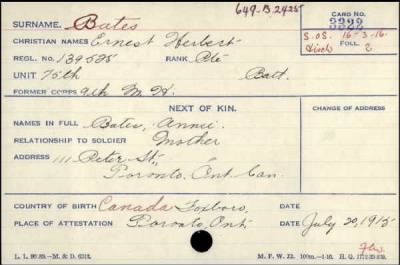 649-B-2425
CARD NO.
3322
SURNAME. Bates
CHRISTIAN NAMES Ernest Herbert
S.O.S. 16-3-16.
FOLL.
Disch 2
REGL. NO. 139525 RANK Pte
UNIT 75th Batt.
FORMER CORPS 9th M. H.
NEXT OF KIN.
CHANGE OF ADDRESS
NAMES IN FULL Bates, Annie.
RELATIONSHIP TO SOLDIER Mother
ADDRESS 111 Peter St.,
Toronto. Ont. Can.
COUNTRY OF BIRTH Canada Foxboro, DATE
PLACE OF ATTESTATION Toronto, Ont. DATE July 20, 1915
M. F. W. 22.